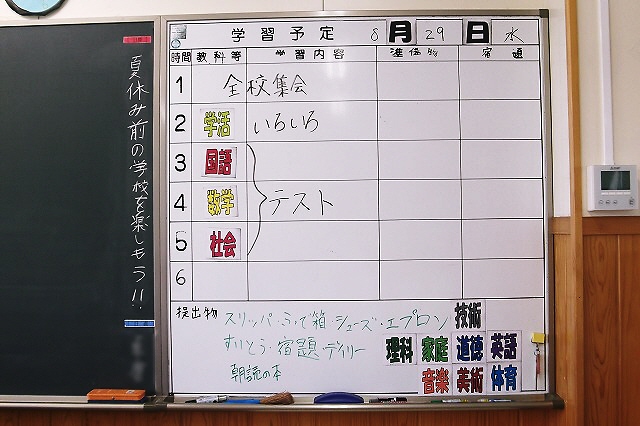 夏休み前の学校を楽しもう!!
学習予定 8月29日水
時間 教科等 学習内容 準備物 宿題
1 全校集会
2 学活 いろいろ
3 国語
4 数学 テスト
5 社会
6
提出物 スリッパ・ふで箱・シューズ・エプロン
すいとう・宿題 デイリー
朝読の本
技術
理科 家庭 道徳 英語
音楽 美術 体育